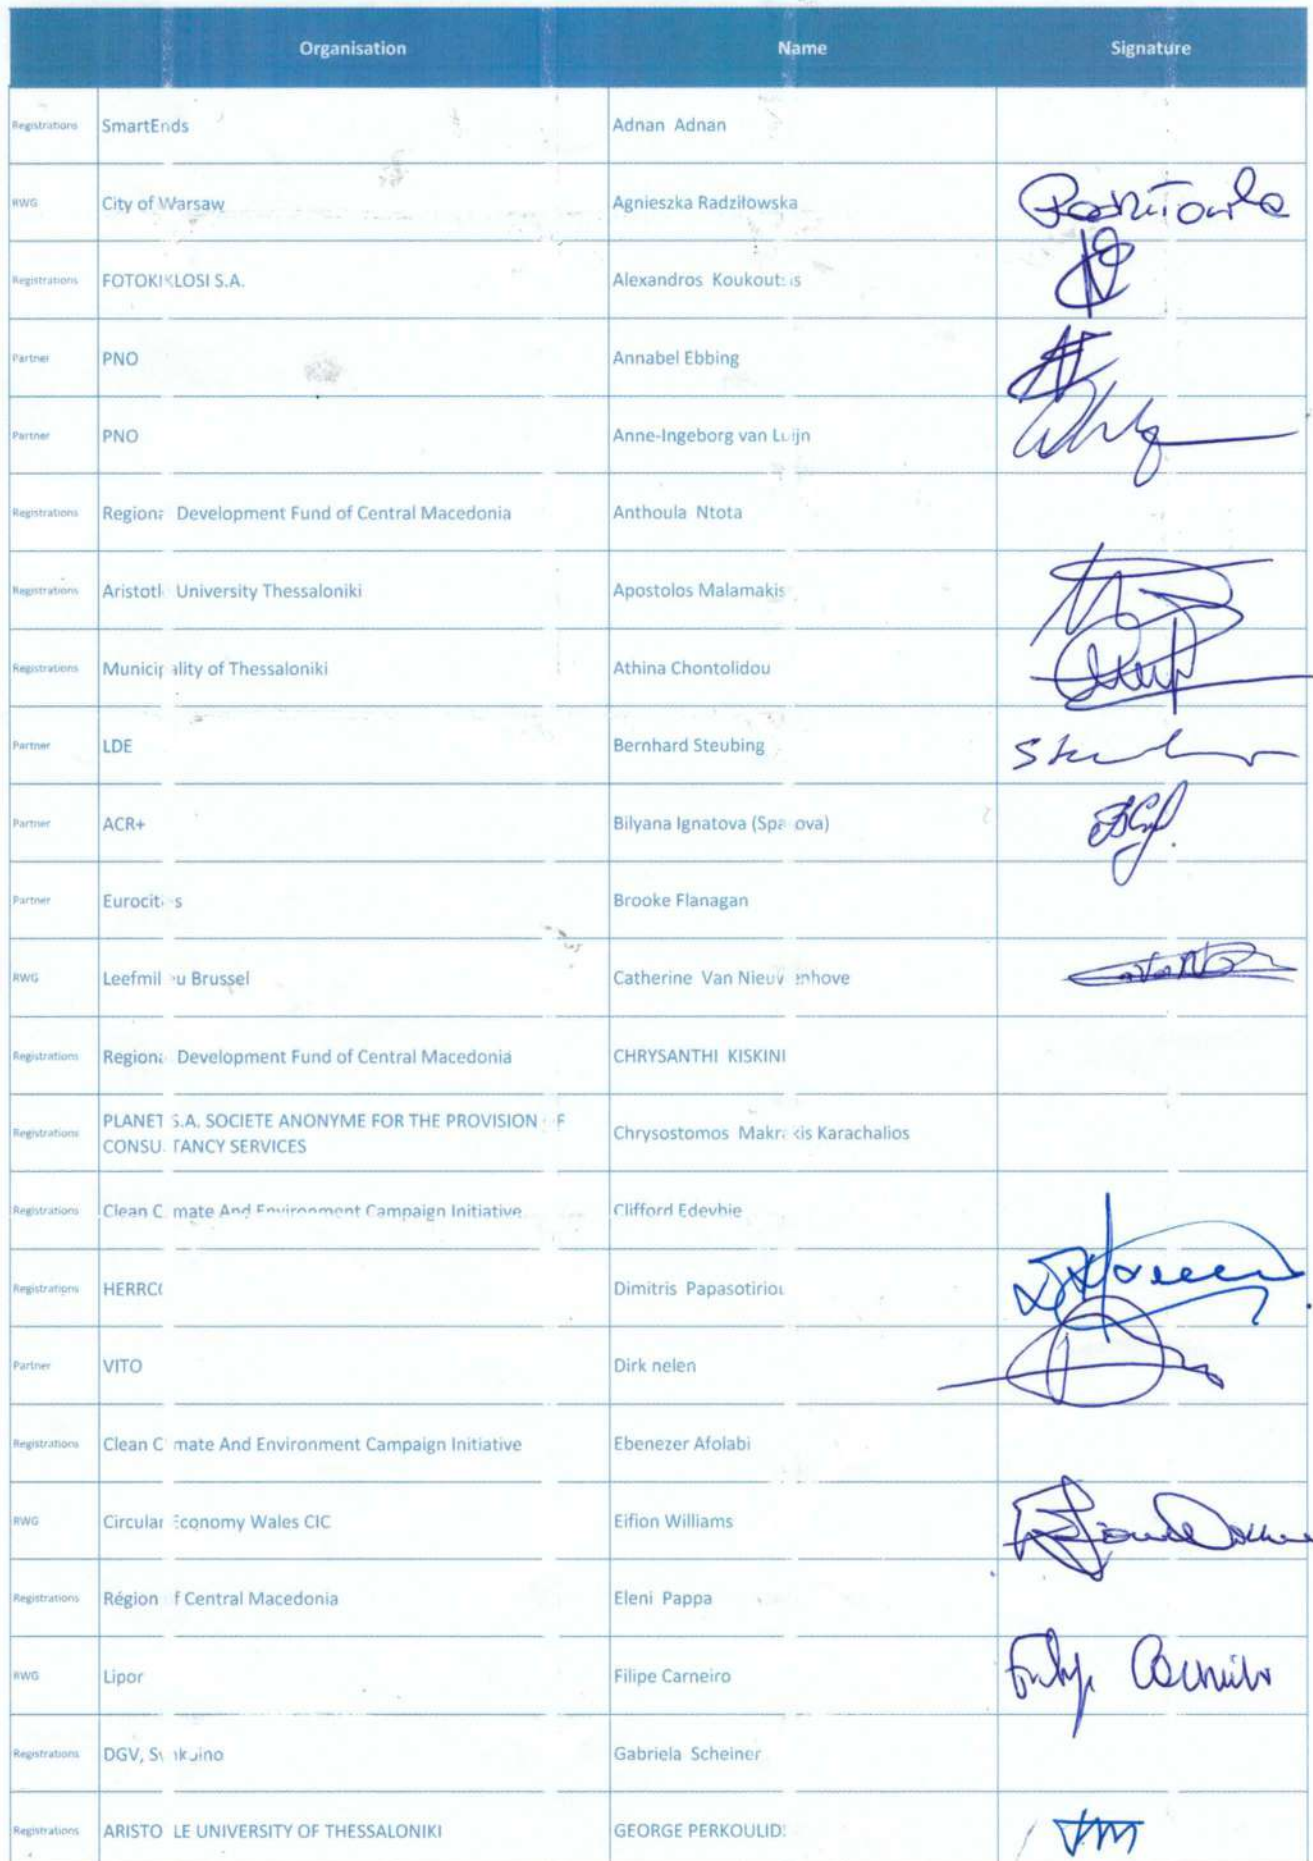 Organisation Name Signature
Registrations SmartEnds Adnan Adnan
RWG City of Warsaw Agnieszka Radziłowska Radziłowska
Registrations FOTOKIKLOSI S.A. Alexandros Koukoutsis
Partner PNO Annabel Ebbing
Partner PNO Anne-Ingeborg van Luijn
Registrations Regional Development Fund of Central Macedonia Anthoula Ntota
Registrations Aristotle University Thessaloniki Apostolos Malamakis
Registrations Municipality of Thessaloniki Athina Chontolidou
Partner LDE Bernhard Steubing
Partner ACR+ Bilyana Ignatova (Spasova)
Partner Eurocities Brooke Flanagan
RWG Leefmilieu Brussel Catherine Van Nieuwenhove
Registrations Regional Development Fund of Central Macedonia CHRYSANTHI KISKINI
Registrations PLANET S.A. SOCIETE ANONYME FOR THE PROVISION OF
CONSULTANCY SERVICES Chrysostomos Makrakis Karachalios
Registrations Clean Climate And Environment Campaign Initiative Clifford Edevbie
Registrations HERRCO Dimitris Papasotiriou
Partner VITO Dirk nelen
Registrations Clean Climate And Environment Campaign Initiative Ebenezer Afolabi
RWG Circular Economy Wales CIC Eifion Williams
Registrations Région of Central Macedonia Eleni Pappa
RWG Lipor Filipe Carneiro Filipe Carneiro
Registrations DGV, Gabriela Scheiner
Registrations ARISTOTLE UNIVERSITY OF THESSALONIKI GEORGE